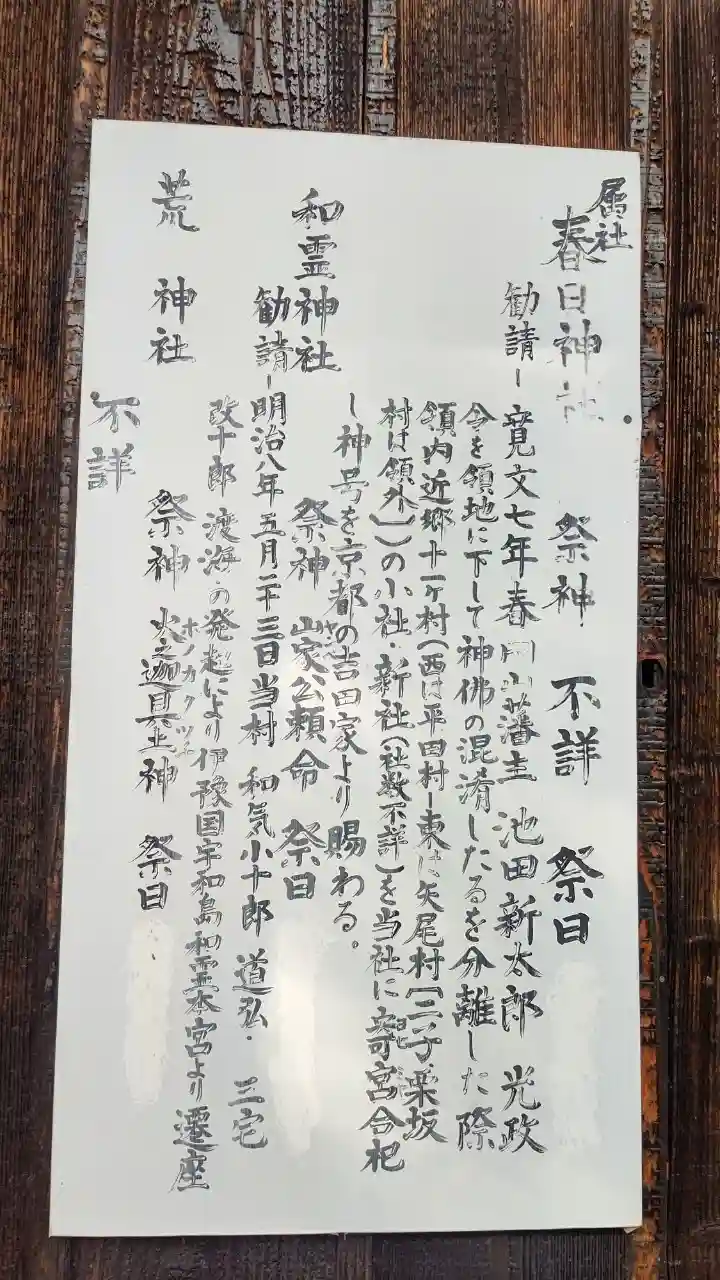 属社
春日神社 祭神 不詳 祭日
勧請ー寛文七年春岡山藩主 池田新太郎 光政
令を領地に下して神佛の混淆したるを分離した際
領内近郷十一ヶ村(西は平田村ー東は矢尾村[二子・栗坂
村は領外])の小社・新社(社数不詳)を当社に寄宮合祀
し神号を京都の吉田家より賜わる。
和霊神社 祭神 山家公頼命 祭日
勧請ー明治八年五月二十三日当村 和気小十郎 道弘・三宅
改十郎 渡海の発起により伊豫国宇和島和霊本宮より遷座
荒神社 祭神 火之迦具土神 祭日
ホノカグツチ
不詳